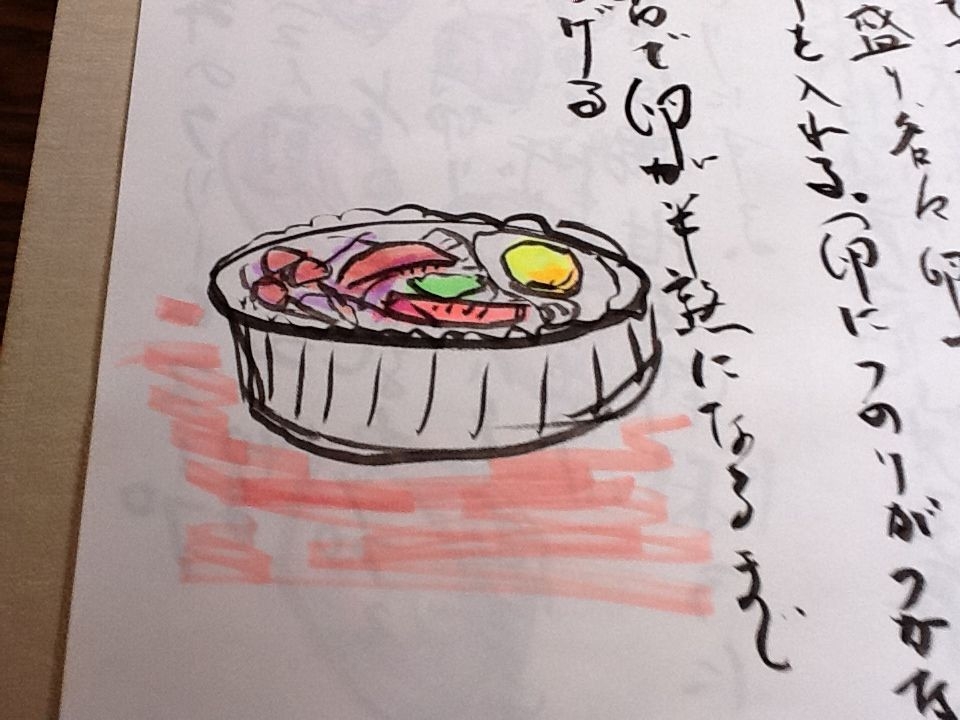 盛り、各に卵
を入れる。(卵につのりがつかな
で卵が半熟になるまで
げる